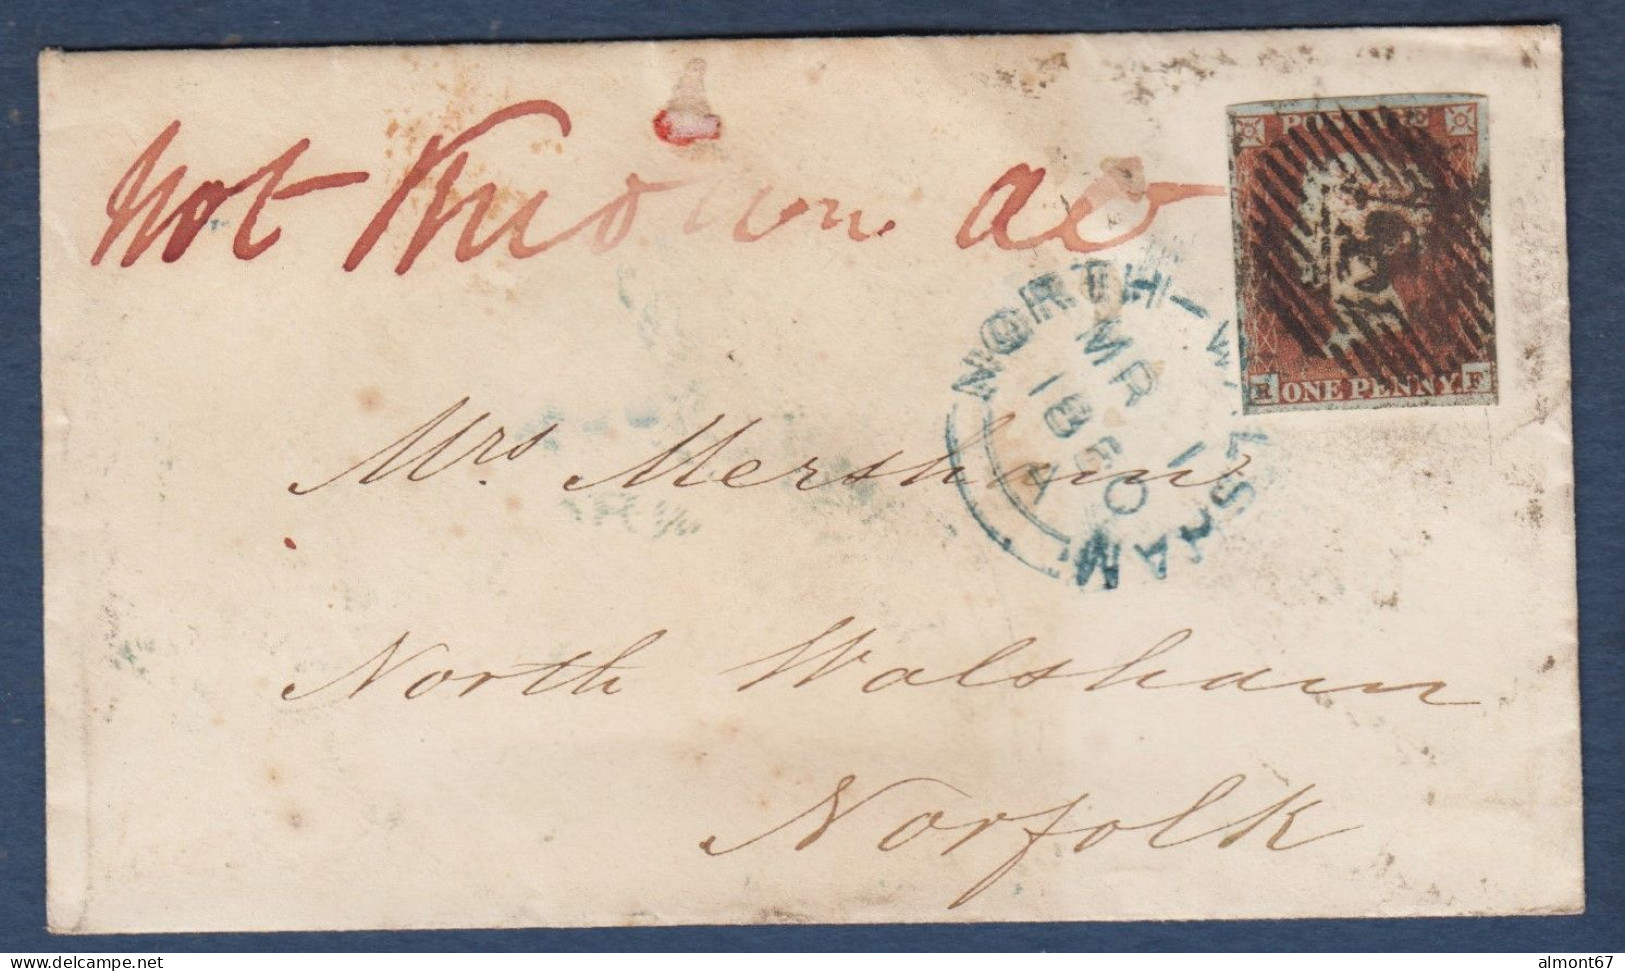 Not Known at
POSTAGE
R ONE PENNY. F
NORTH-WALSHAM
MR 10
1850
A
Mrs Mersham
North Walsham
Norfolk
almont67